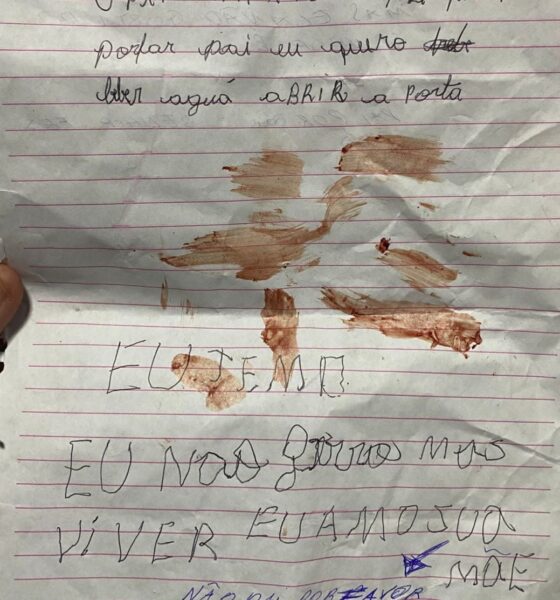 portar pai eu quero
bber aguá aBRIR a Porta
EU TEMO
EU NaO QUIRO MAS
VIVER EU AMO SUA
MÃE
NÃO PAI POR FAVOR